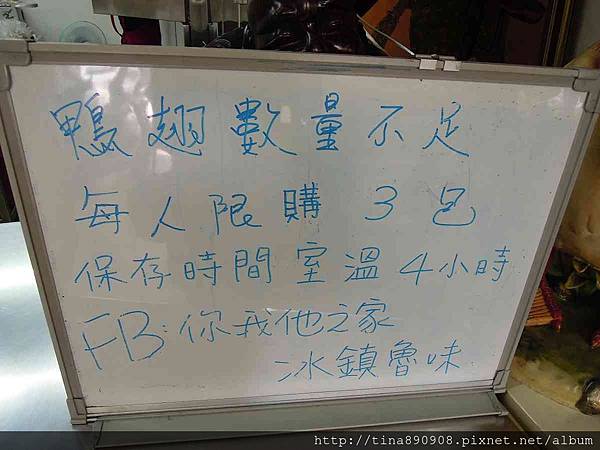 鴨翅數量不足
每人限購3包
保存時間室溫4小時
FB:你我他之家
冰鎮魯味
http://tina890908.pixnet.net/album